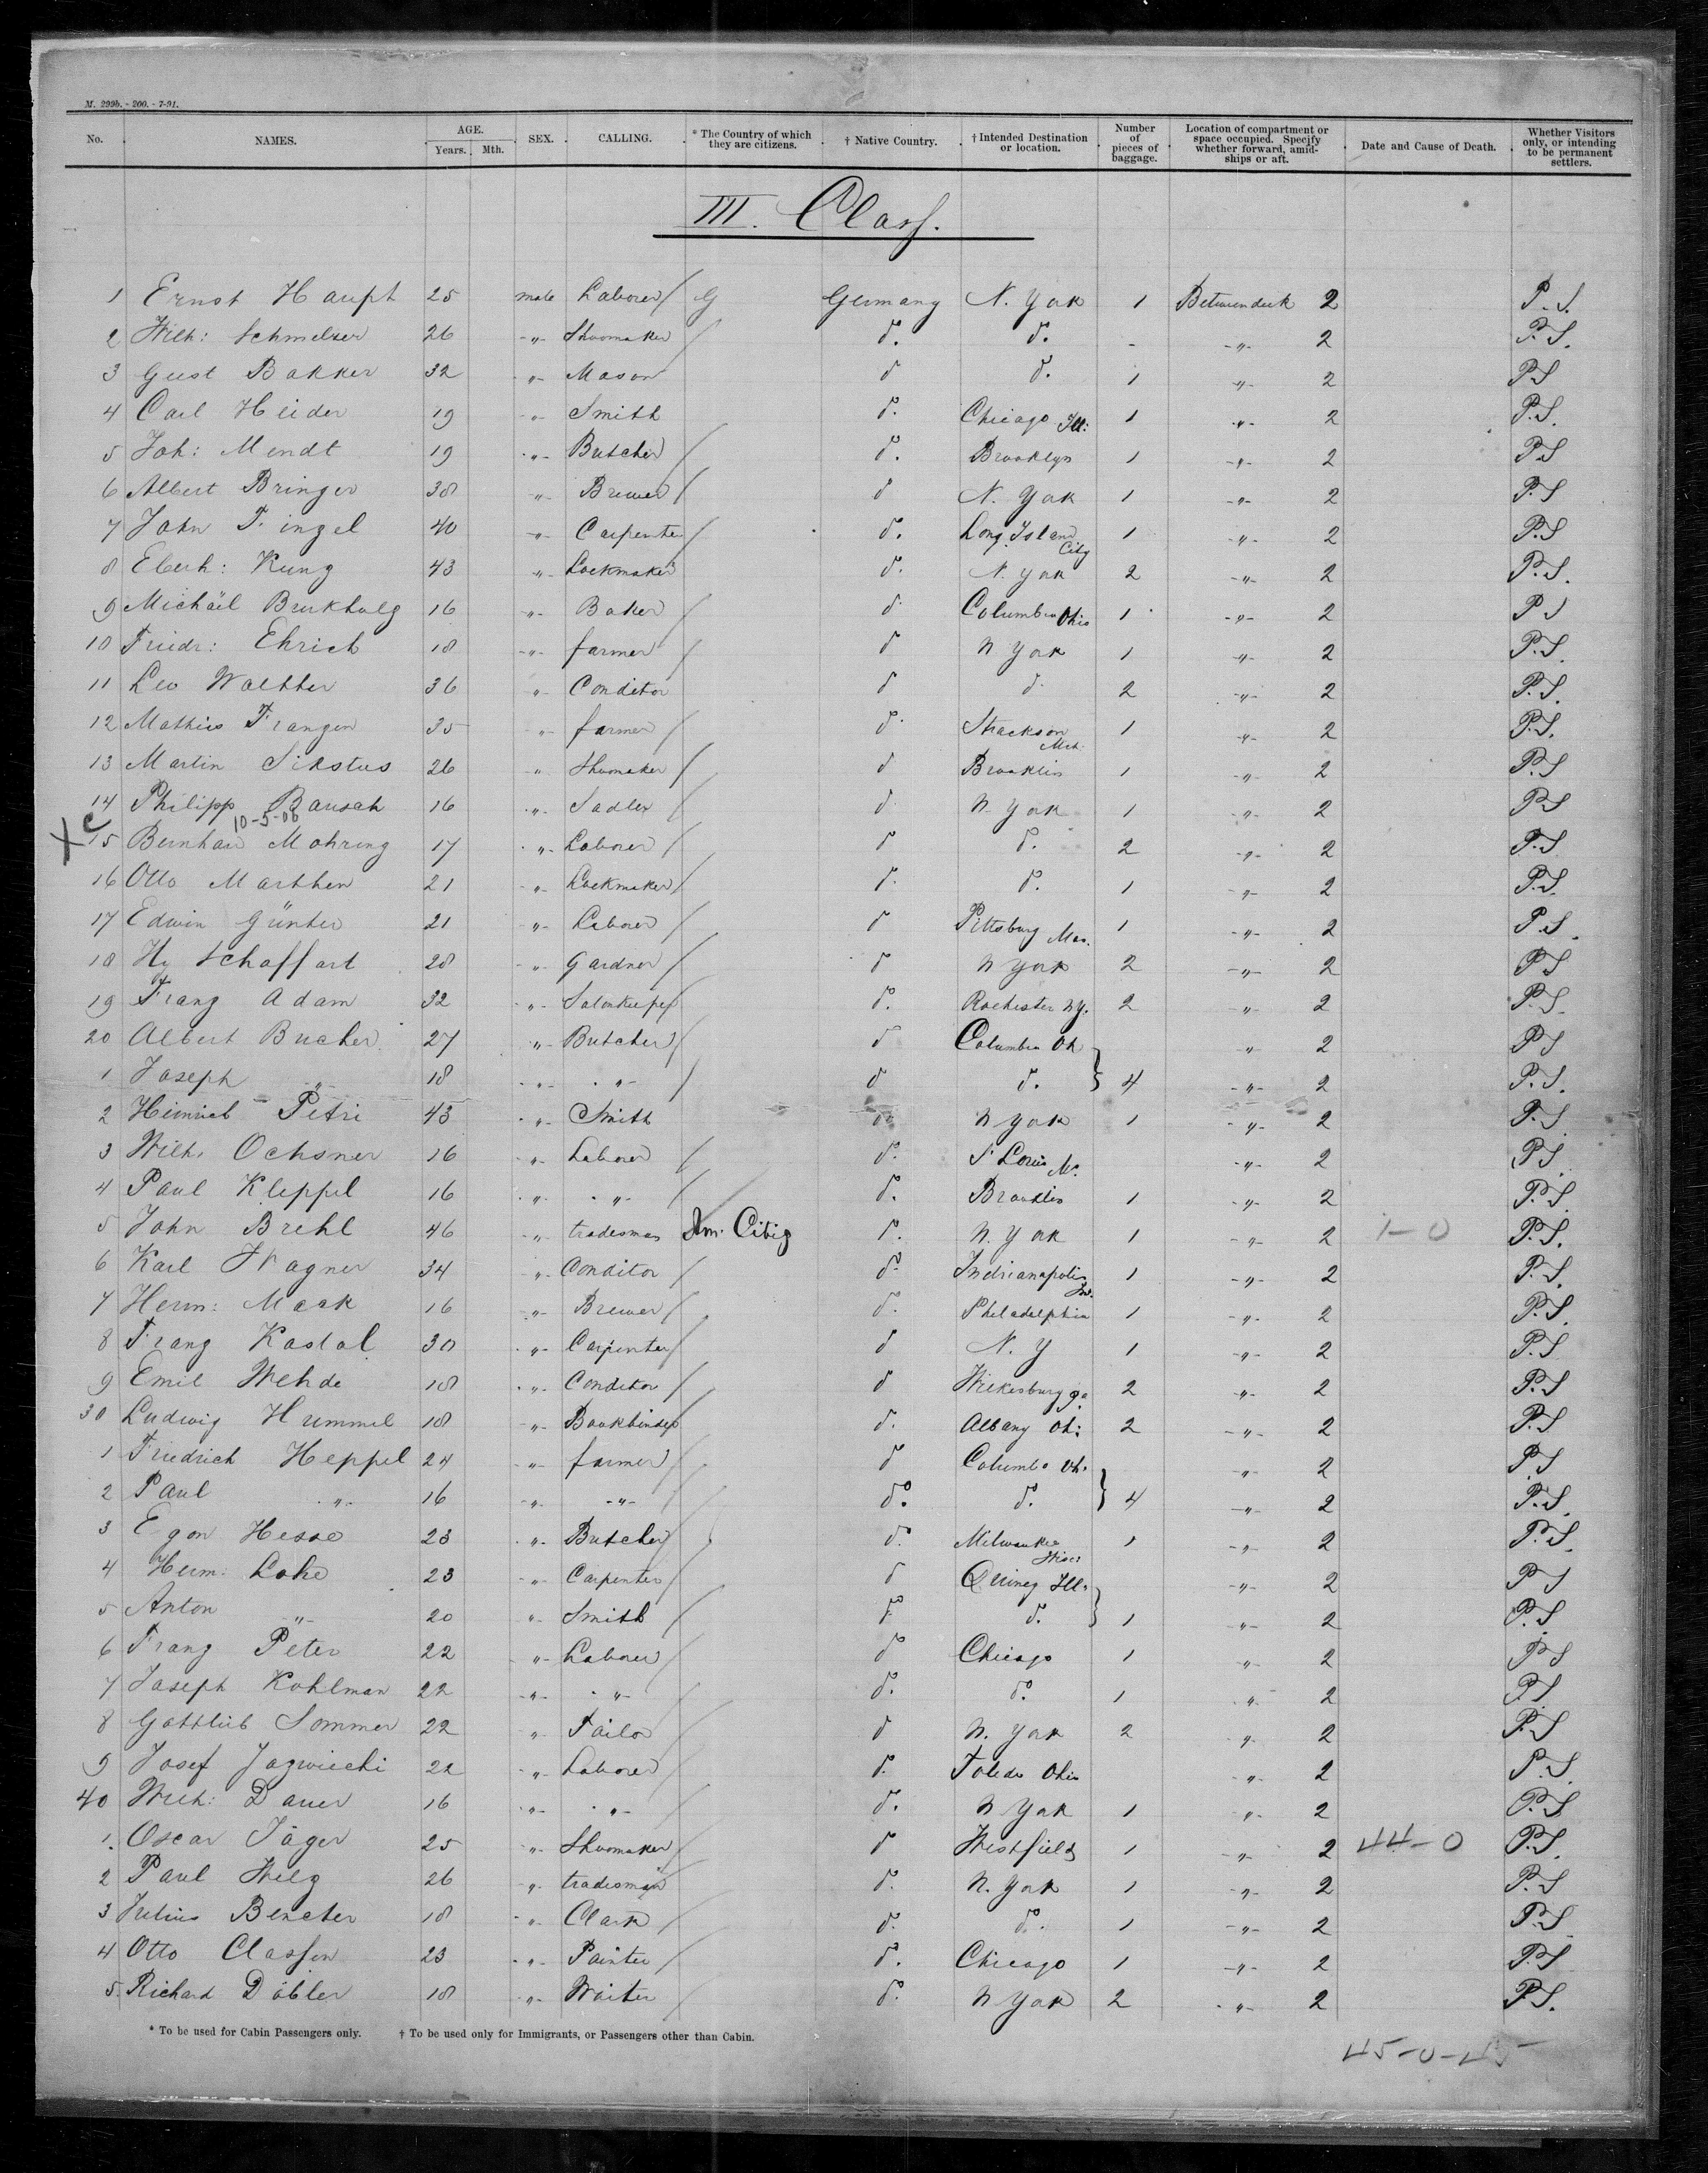 M. 299b. - 200. - 7-91.
No. NAMES. AGE. Years. Mth. SEX. CALLING. * The Country of which they are citizens. † Native Country. † Intended Destination or location. Number of pieces of baggage. Location of compartment or space occupied. Specify whether forward, amidships or aft. Date and Cause of Death. Whether Visitors only, or intending to be permanent settlers.
III. Class.
1 Ernst Haupt 25 male Laborer / G Germany N. York 1 Betweendeck 2 P.S.
2 Wilh: Schmelzer 26 -"- Shoomaker / d. d. - -"- 2 P.S.
3 Gust Bakker 32 -"- Mason d d. 1 -"- 2 PS
4 Carl Heider 19 -"- Smith d. Chicago Ill: 1 -"- 2 P.S.
5 Joh: Mendt 19 -"- Butcher / d. Brooklyn 1 -"- 2 PS
6 Albert Bringer 38 -"- Brewer / d N. York 1 -"- 2 P.S
7 John Fingel 40 -"- Carpenter / d. Long Island City 1 -"- 2 P.S
8 Eberh: Kung 43 " Lockmaker d. N. York 2 -"- 2 P.S.
9 Michäel 16 -"- Baker / d Columbus Ohio 1 -"- 2 PS
10 Friedr: Ehrich 18 -"- farmer / d N York 1 " 2 P.S.
11 Leo Walther 36 " Conditor d d 2 -"- 2 P.S.
12 Mathias Frangen 35 " farmer / d. Mch. 1 -"- 2 P.S.
13 Martin Sikstus 26 " Shoomaker / d Brooklin 1 " 2 P.S
14 Philipp Bausch 16 -"- Sadler / d N York 1 " 2 PS
10-5-06
X c 15 Bernhard Mohring 17 -"- Laborer / d d. 2 -"- 2 P.S
16 Otto Marthen 21 -"- Lockmaker / d. d. 1 -"- 2 P.S.
17 Edwin Günter 21 -"- Laborer / d Pittsburg 1 -"- 2 P.S.
18 Hy Schaffart 28 -"- Gardner / d N York 2 -"- 2 PS
19 Franz Adam 32 -"- Salonkeeper d. Rochester NY. 2 " 2 P.S.
20 Albert Bucher 27 -"- Butcher / d Columbus Oh } " 2 PS
1 Joseph -"- 18 -"- -"- / d d. } 4 -"- 2 P.S.
2 Heinrich Petri 43 -"- Smith d. N York 1 -"- 2 P.S
3 Wilh. Ochsner 16 -"- Laborer / d. St Louis Mo. -"- 2 PS.
4 Paul Kleppel 16 -"- -"- / d. Brooklin 1 -"- 2 P.S.
5 John Brehl 46 -"- tradesman Am. Citiz d. N. York 1 -"- 2 1-0 P.S.
6 Karl Wagner 34 -"- Conditor / d. Indrianapolis Ind. 1 -"- 2 P.S.
7 Herm: Maak 16 -"- Brewer / d. Philadelphia 1 -"- 2 P.S.
8 Franz Kastal 30 -"- Carpenter / d N. Y 1 -"- 2 P.S
9 Emil Wehde 18 -"- Conditor / d Wilkesburg Pa 2 -"- 2 P.S
30 Ludwig Hummel 18 -"- Bookbinder d. Albany Oh: 2 -"- 2 P.S
1 Friedrich Heppel 24 -"- farmer / d Columbo Oh. } -"- 2 P.S
2 Paul -"- 16 -"- -"- / d. d. } 4 -"- 2 P.S.
3 Egon Hesse 23 -"- Butcher / d. Milwaukee Wisc: 1 -"- 2 P.S.
4 Herm: Lohe 23 -"- Carpenter d Quincy Ill. } -"- 2 PS
5 Anton -"- 20 -"- Smith / d. d. } 1 -"- 2 P.S
6 Franz Peter 22 -"- Laborer / d Chicago 1 " 2 PS
7 Joseph Kohlman 22 -"- -"- / d. d. 1 -"- 2 P.S.
8 Gottlieb Sommer 22 -"- Tailor / d N. York 2 " 2 P.S
9 Josef 22 -"- Laborer / d. Toledo Ohio " 2 P.S.
40 Wilh: Dauer 16 -"- -"- / d. N York 1 " 2 P.S.
1. Oscar Jäger 25 -"- Shoomaker / d Westfield 1 -"- 2 44-0 P.S.
2 Paul Welz 26 -"- tradesman / d. N. York 1 -"- 2 P.S
3 Julius Bencter 18 -"- Clark / d. d. 1 -"- 2 P.S
4 Otto Classen 23 -"- Painter / d. Chicago 1 -"- 2 P.S
5. Richard Döbler 18 -"- Waiter / d. N York 2 -"- 2 P.S.
* To be used for Cabin Passengers only. † To be used only for Immigrants, or Passengers other than Cabin.
45-0-45